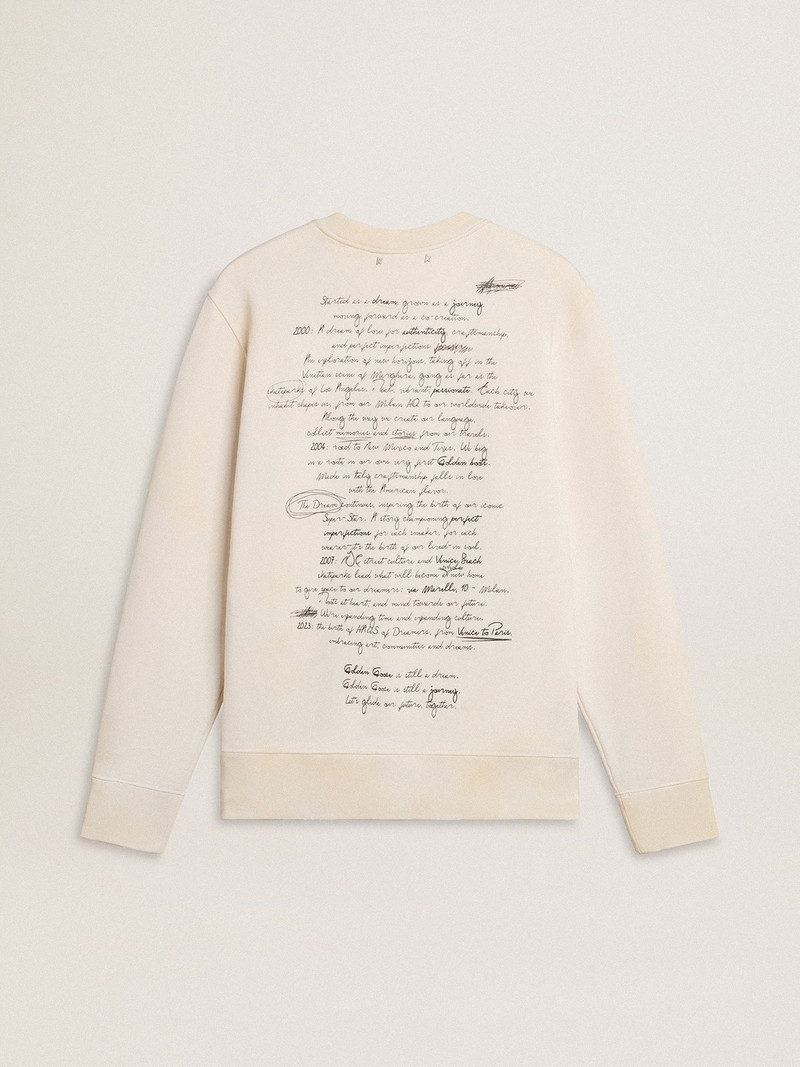 Started as a dream, grown as a journey,
moving forward as a co-creation.
2000: A dream of love for authenticity, craftsmanship,
and perfect imperfections
An exploration of new horizons, taking off in the
Venetian scene of Marghera, going as far as the
skateparks of Los Angeles. Real, vibrant, passionate. Each city we
inhabit shapes us, from our Milan HQ to our worldwide takeover.
Along the way we create our language,
collect memories and stories from our travels.
2004: road to New Mexico and Texas. We beg
in a route in our own very first Golden boots.
Made in Italy craftsmanship falls in love
with the American flavor.
The Dream continues, inspiring the birth of our iconic
Super-Star. A story championing perfect
imperfections for each sneaker, for each
wearer-it's the birth of our lived-in soul.
2007: street culture and Venice Beach
skateparks lead what will become new home
to give space to our dreamers: via Morelli, 10 - Milan.
roots at heart, and mind towards our future.
We're expanding time and expanding culture.
2023: the birth of HAUS of Dreamers, from Venice to Paris,
embracing art, communities and dreams.
Golden Goose is still a dream.
Golden Goose is still a journey.
Let's glide our future, together.